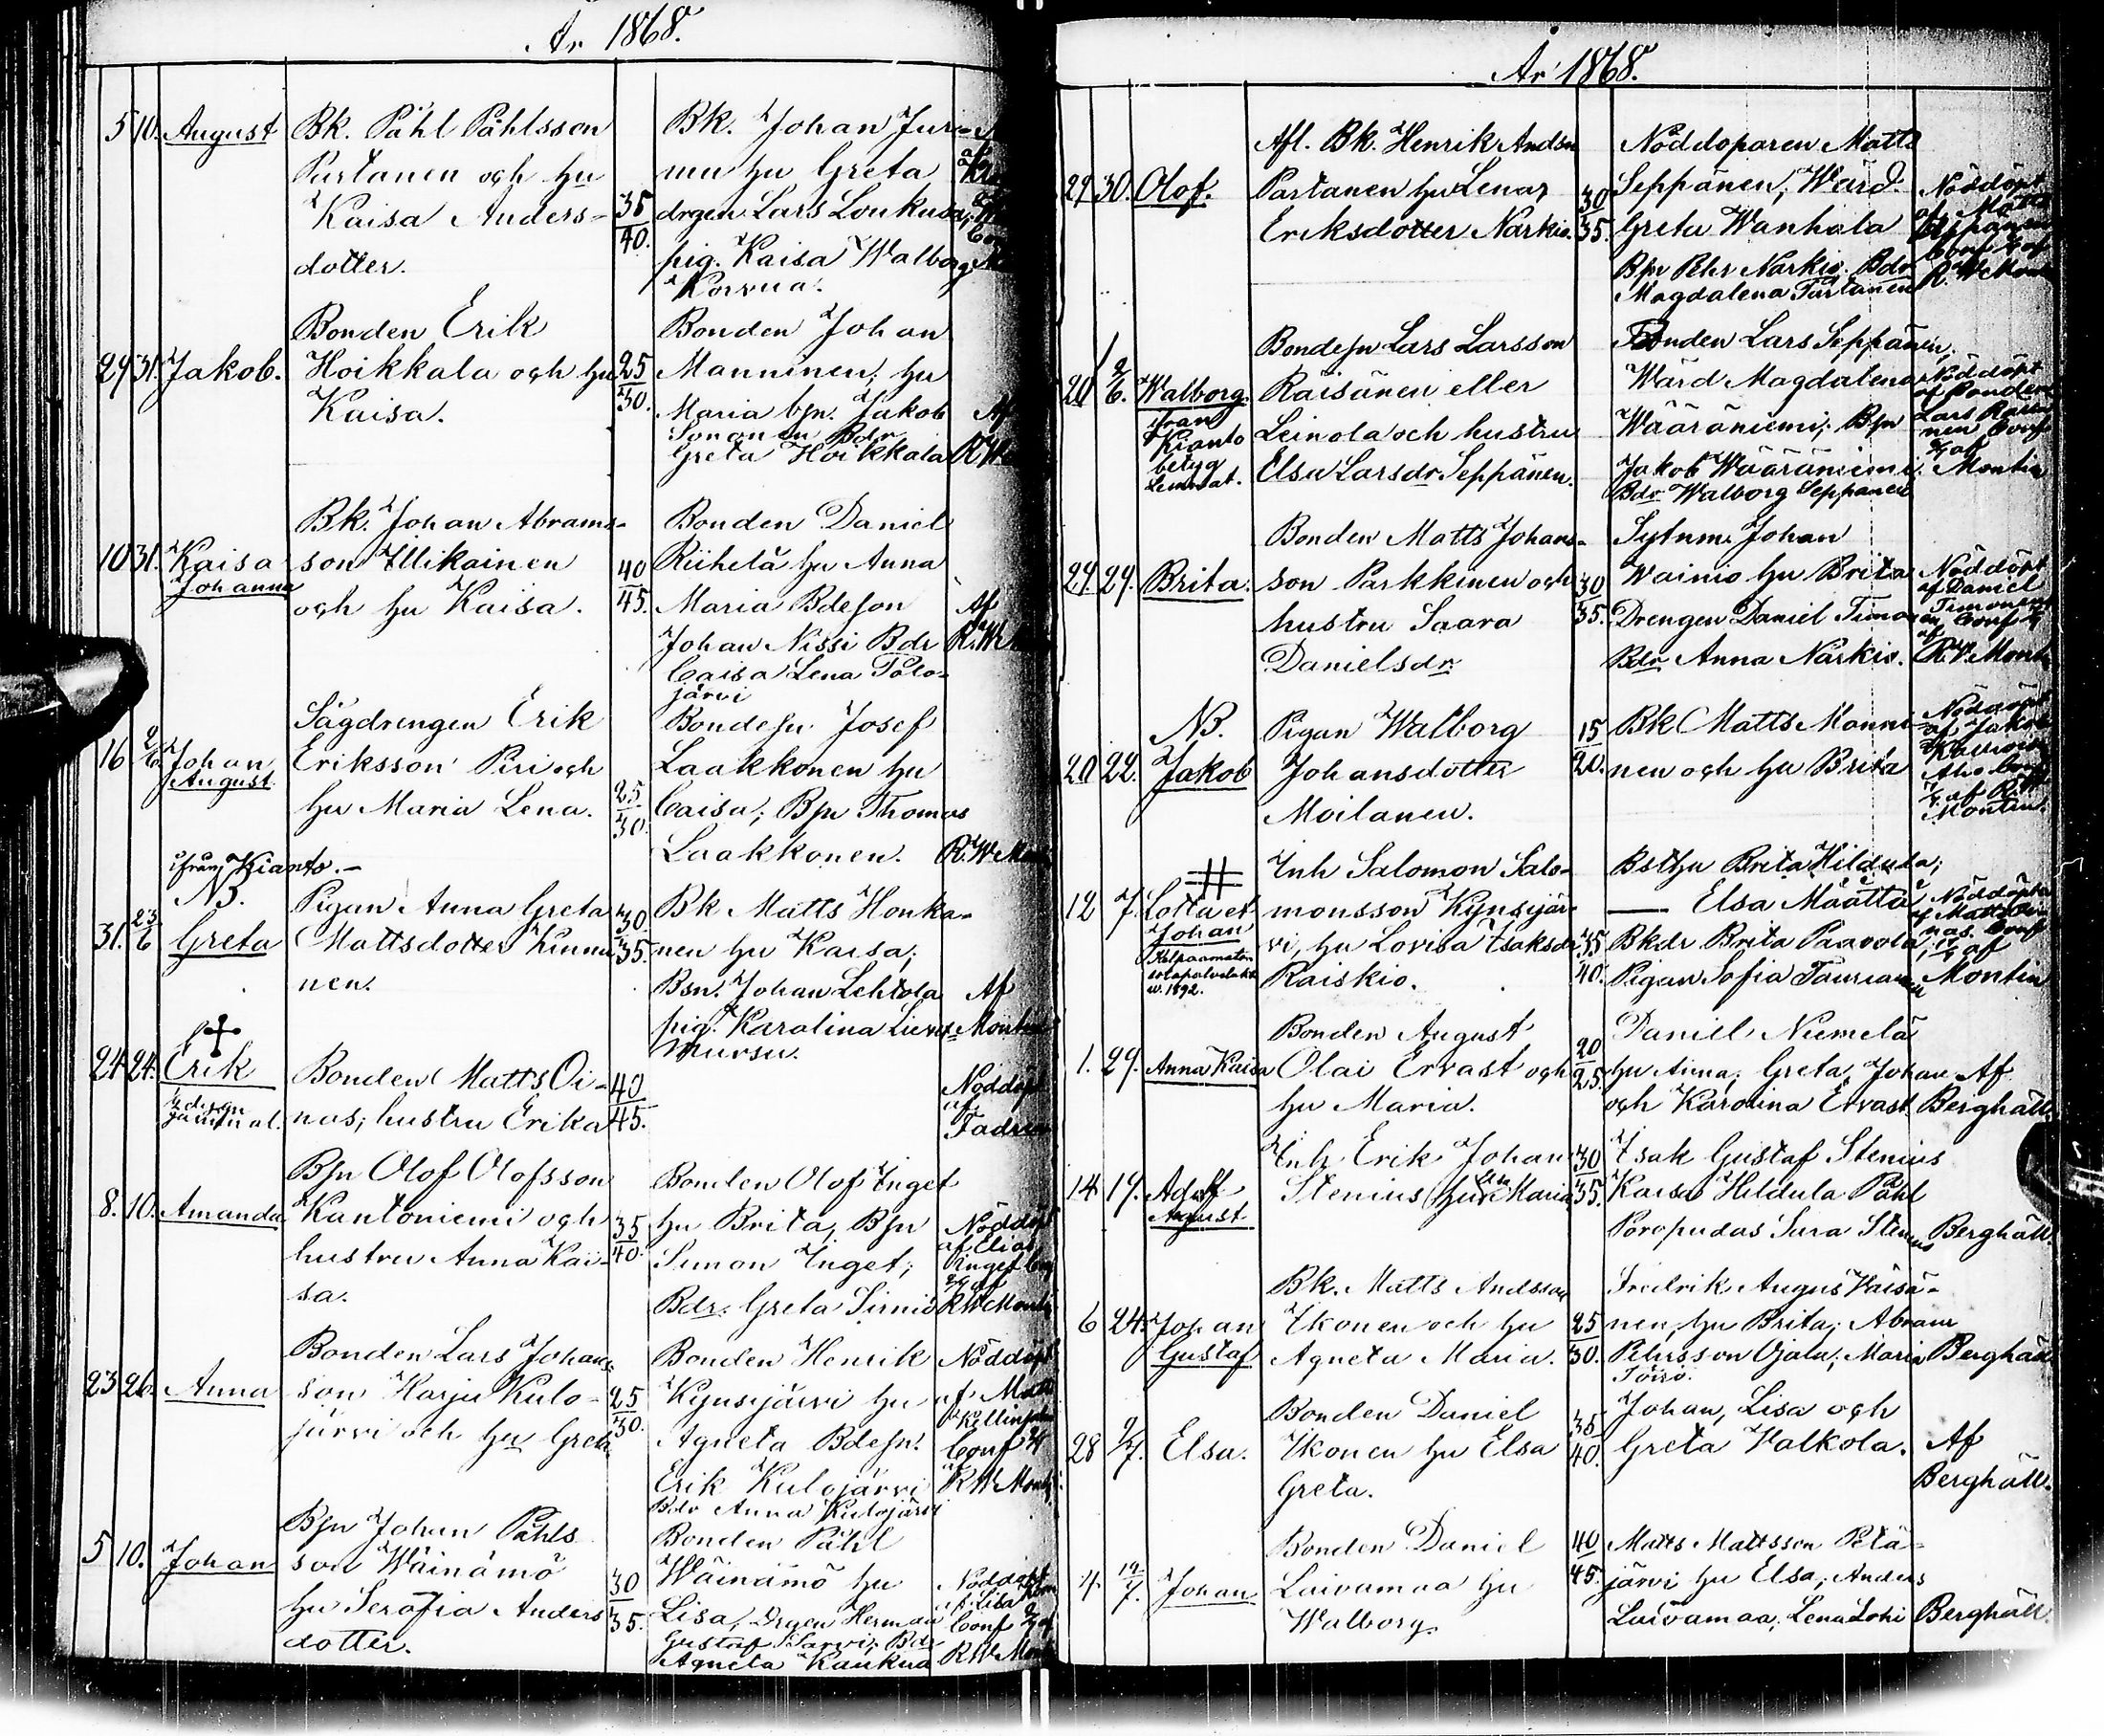 År 1868.
5 10. August Bk. Påhl Påhlsson Partanen och hu Kaisa Anders- dotter. 35 40. Bk. Johan Juri- mu hu Greta drgen Lars Loukusa, pig. Kaisa Walborg Korvua.
29 31. Jakob. Bonden Erik Hoikkala och hu Kaisa. 25 30. Bonden Johan Manninen, hu Maria bjn. Jakob Sonanen Bdr Greta Hoikkala Af
10 31. Kaisa Johanna Bk. Johan Abrams- son Illikainen och hu Kaisa. 40 45. Bonden Daniel Riihelä hu Anna Maria Bdeson Johan Nissi Bdr Caisa Lena Polo- järvi Af
16 2/6. Johan August Sågdrengen Erik Eriksson Piri och hu Maria Lena. 25 30. Bondesn Josef Laakkonen hu Caisa; Bjn Thomas Laakkonen.
ifrån Kianto.-
NB.
31. 23/6 Greta Pigan Anna Greta Mattsdotter Kinnu nen. 30 35. Bk Matts Honka- nen hu Kaisa; Bsn. Johan Lehtola pig. Karolina Mursu. Af Montin
24 24. Erik Bonden Matts Oi- nas, hustru Erika 40 45. Nöddöpt af Fadren
8. 10. Amanda Bjn Olof Olofsson Kantoniemi och hustru Anna Kai- sa. 35 40. Bonden Olof Inget hu Brita, Bjn Simon Inget; Bdr. Greta Sirniö Nöddöpt af Elias Inget
23 26. Anna Bonden Lars Johans- son Harju Kulo- järvi och hu Greta 25 30. Bonden Henrik Kynsijärvi hu Agneta Bdesn. Erik Kulojärvi Bdr Anna Kulojärvi Nöddöpt af Conf af
5 10. Johan Bjn Johan Påhls son Wäinämö hu Serafia Anders dotter. 30 35. Bonden Påhl Wäinämö hu Lisa, Drgen Herman Gustaf Särvi; Bdr Agneta Kaukua Nöddöpt af Lisa Conf
År 1868.
29 30. Olof. Afl. Bk. Henrik Andsn Partanen hu Lena Eriksdotter Närkiö. 30 35. Nöddoparen Matts Seppänen, Wärd. Greta Wanhala Bjn Pehr Närkiö. Bdr Magdalena Turtanen Nöddöpt af Matts Seppänen
20 2/6. Walborg. från Kianto betyg lemnat. Bondesn Lars Larsson Räisänen eller Leinola och hustru Elsa Larsdr Seppänen. Bonden Lars Seppänen, Wärd Magdalena Wääräniemi; Bjn Jakob Wääräniemi Bdr Walborg Seppänen Nöddöpt af Bonden Lars Montin
24. 29. Brita. Bonden Matts Johans- son Parkkinen och hustru Saara Danielsdr. 30 35. Sytnm. Johan Wainio hu Brita Drengen Daniel Timo- Bdr Anna Närkiö. Nöddöpt af Daniel Timonen Conf af
NB.
20 22. Jakob Pigan Walborg Johansdotter Moilanen. 15 20. Bk Matts Manni- nen och hu Brita Nöddöpt af Jakob Aho Montin.
12 7. Lotta et Johan w. 1892. Inh Salomon Salo- monsson Kynsijär- vi, hu Lovisa Isaksdr Raiskio. 35 40. Bsthu Brita Hildula; — Elsa Määttä, Bkdr Brita Paavola, Pigan Sofia Taurianen Nöddöpta af Matts Oi- nas. Conf af Montin
1. 29. Anna Kaisa Bonden August Olai Ervast och hu Maria. 20 25. Daniel Niemelä hu Anna, Greta, Johan och Karolina Ervast. Af Berghäll.
14 19. Adolf August Inh Erik Johan Stenius hu Maria 30 35. Isak Gustaf Stenius Kaisa Hildula Påhl Poropudas Sara Stenius Berghäll.
6 24. Johan Gustaf Bk. Matts Andsson Ikonen och hu Agneta Maria. 25 30. Fredrik Augus Väisä- nen, hu Brita; Abram Pehrsson Ojala, Maria Törrö. Berghäll
28 9/7. Elsa. Bonden Daniel Ikonen hu Elsa Greta. 35 40. Johan, Lisa och Greta Valkola. Af Berghäll.
4. 19/7. Johan Bonden Daniel Laivamaa hu Walborg. 40 45. Matts Mattsson Petä- järvi hu Elsa; Anders Laivamaa, Lena Lohi Berghäll.